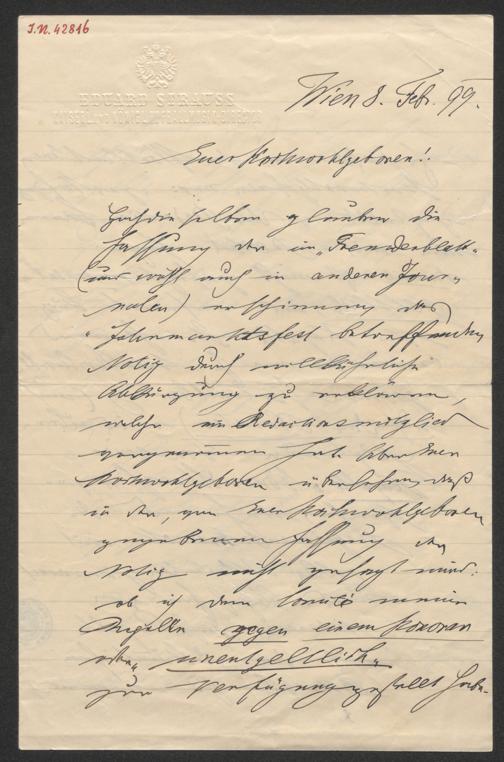 I.N. 42816
EDUARD STRAUSS
Wien 8. Febr. 99.
Euer Hochwohlgeboren!
Hochdieselben glauben die
Fassung der im „Fremdenblatt“
(und wohl auch in anderen Jour-
nalen) erschienenen, das
„Jahrmarktsfest betreffenden
Notiz durch willkührliche
Abkürzung zu erklären,
welche ein Redactionsmitglied
vorgenommen hat. Aber Euer
Hochwohlgeboren übersehen, daß
in der, von Euer Hochwohlgeboren
gegebenen Fassung der
Notiz nicht gesagt wird:
ob ich dem Comité meine
Kapelle gegen einem Honorar
oder „unentgeltlich“
zur Verfügung gestellt habe.